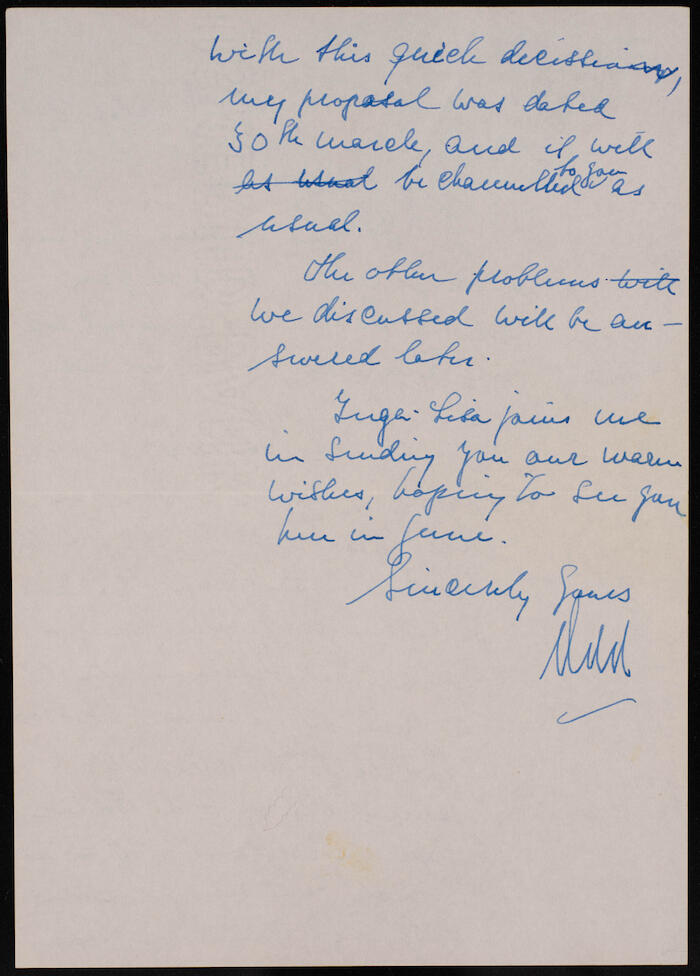 with this quick decission,
my proposal was dated
30th march, and it will
as usual be channelled to you as
usual.
The other problems will
we discussed will be an-
swered later.
Inga-Lisa joins me
in sending you our warm
wishes, hoping to see you
here in June.
Sincerely Yours